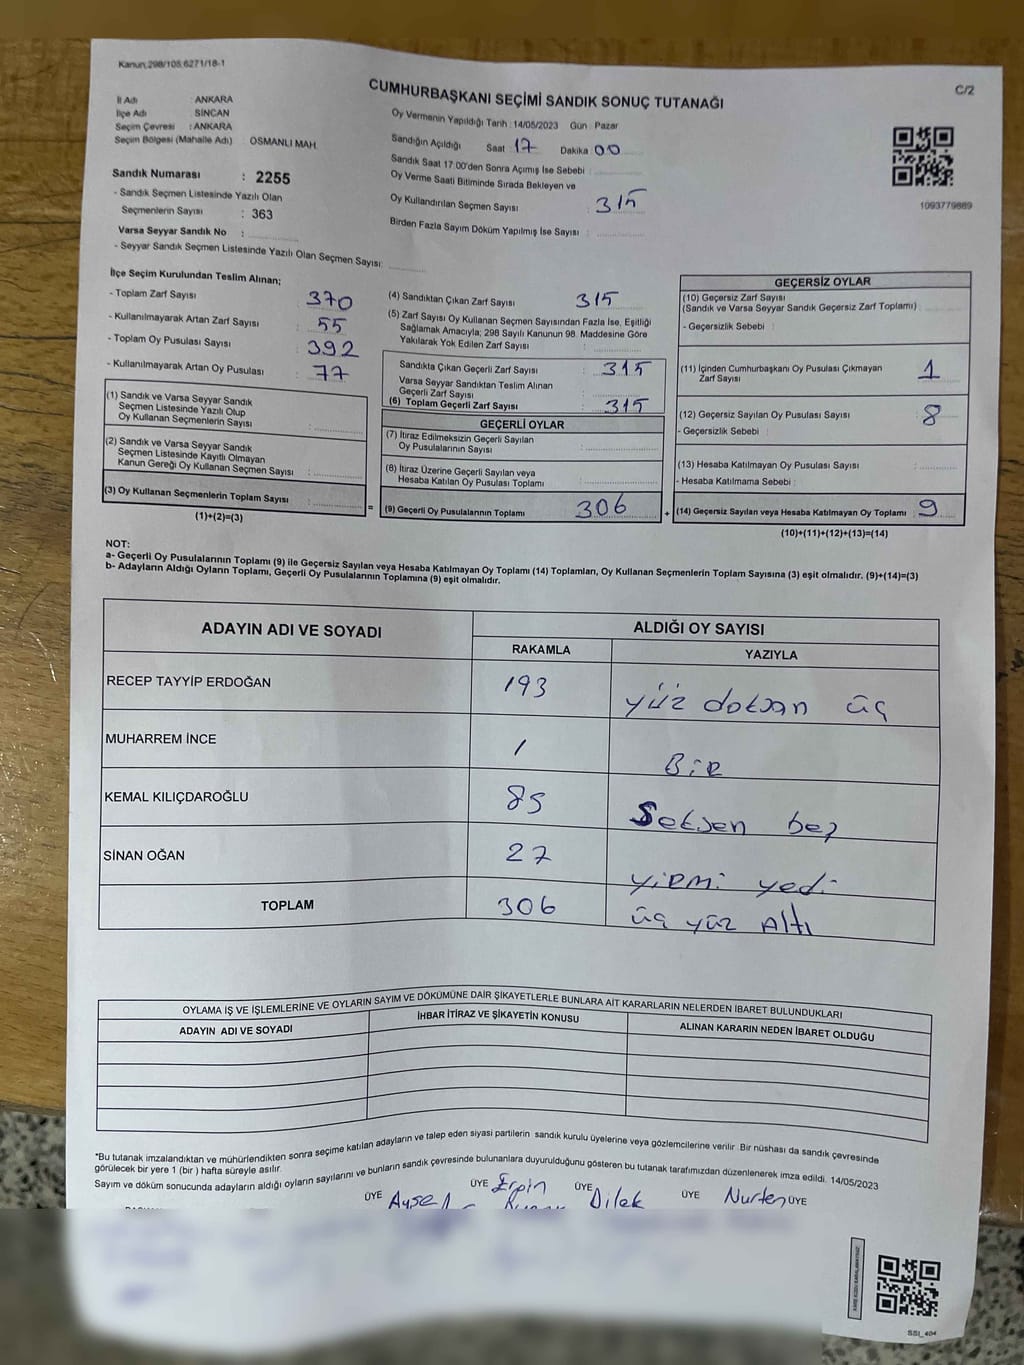 Kanun.298/105.6271/18-1
C/2
CUMHURBAŞKANI SEÇİMİ SANDIK SONUÇ TUTANAĞI
İl Adı : ANKARA
İlçe Adı : SİNCAN
Seçim Çevresi : ANKARA
Seçim Bölgesi (Mahalle Adı) : OSMANLI MAH.
Sandık Numarası : 2255
- Sandık Seçmen Listesinde Yazılı Olan
Seçmenlerin Sayısı : 363
Varsa Seyyar Sandık No :
- Seyyar Sandık Seçmen Listesinde Yazılı Olan Seçmen Sayısı:
Oy Vermenin Yapıldığı Tarih : 14/05/2023 Gün : Pazar
Sandığın Açıldığı Saat 17 Dakika 00
Sandık Saat 17:00'den Sonra Açımış İse Sebebi :
Oy Verme Saati Bitiminde Sırada Bekleyen ve
Oy Kullandırılan Seçmen Sayısı : 315
Birden Fazla Sayım Döküm Yapılmış İse Sayısı :
1093779889
İlçe Seçim Kurulundan Teslim Alınan;
- Toplam Zarf Sayısı : 370
- Kullanılmayarak Artan Zarf Sayısı : 55
- Toplam Oy Pusulası Sayısı : 392
- Kullanılmayarak Artan Oy Pusulası : 77
(1) Sandık ve Varsa Seyyar Sandık
Seçmen Listesinde Yazılı Olup
Oy Kullanan Seçmenlerin Sayısı :
(2) Sandık ve Varsa Seyyar Sandık
Seçmen Listesinde Kayıtlı Olmayan
Kanun Gereği Oy Kullanan Seçmen Sayısı :
(3) Oy Kullanan Seçmenlerin Toplam Sayısı :
(1)+(2)=(3)
(4) Sandıktan Çıkan Zarf Sayısı : 315
(5) Zarf Sayısı Oy Kullanan Seçmen Sayısından Fazla İse, Eşitliği
Sağlamak Amacıyla; 298 Sayılı Kanunun 98. Maddesine Göre
Yakılarak Yok Edilen Zarf Sayısı :
Sandıkta Çıkan Geçerli Zarf Sayısı : 315
Varsa Seyyar Sandıktan Teslim Alınan
Geçerli Zarf Sayısı :
(6) Toplam Geçerli Zarf Sayısı : 315
GEÇERLİ OYLAR
(7) İtiraz Edilmeksizin Geçerli Sayılan
Oy Pusulalarının Sayısı :
(8) İtiraz Üzerine Geçerli Sayılan veya
Hesaba Katılan Oy Pusulası Toplamı :
= (9) Geçerli Oy Pusulalarının Toplamı : 306 +
GEÇERSİZ OYLAR
(10) Geçersiz Zarf Sayısı
(Sandık ve Varsa Seyyar Sandık Geçersiz Zarf Toplamı) :
- Geçersizlik Sebebi :
(11) İçinden Cumhurbaşkanı Oy Pusulası Çıkmayan
Zarf Sayısı : 1
(12) Geçersiz Sayılan Oy Pusulası Sayısı : 8
- Geçersizlik Sebebi :
(13) Hesaba Katılmayan Oy Pusulası Sayısı :
- Hesaba Katılmama Sebebi :
(14) Geçersiz Sayılan veya Hesaba Katılmayan Oy Toplamı : 9
(10)+(11)+(12)+(13)=(14)
NOT:
a- Geçerli Oy Pusulalarının Toplamı (9) ile Geçersiz Sayılan veya Hesaba Katılmayan Oy Toplamı (14) Toplamları, Oy Kullanan Seçmenlerin Toplam Sayısına (3) eşit olmalıdır. (9)+(14)=(3)
b- Adayların Aldığı Oyların Toplamı, Geçerli Oy Pusulalarının Toplamına (9) eşit olmalıdır.
ADAYIN ADI VE SOYADI ALDIĞI OY SAYISI
RAKAMLA YAZIYLA
RECEP TAYYİP ERDOĞAN 193 yüz doksan üç
MUHARREM İNCE 1 BİR
KEMAL KILIÇDAROĞLU 85 Seksen beş
SİNAN OĞAN 27 yirmi yedi
TOPLAM 306 üç yüz Altı
OYLAMA İŞ VE İŞLEMLERİNE VE OYLARIN SAYIM VE DÖKÜMÜNE DAİR ŞİKAYETLERLE BUNLARA AİT KARARLARIN NELERDEN İBARET BULUNDUKLARI
ADAYIN ADI VE SOYADI İHBAR İTİRAZ VE ŞİKAYETİN KONUSU ALINAN KARARIN NEDEN İBARET OLDUĞU
*Bu tutanak imzalandıktan ve mühürlendikten sonra seçime katılan adayların ve talep eden siyasi partilerin sandık kurulu üyelerine veya gözlemcilerine verilir. Bir nüshası da sandık çevresinde
görülecek bir yere 1 (bir ) hafta süreyle asılır.
Sayım ve döküm sonucunda adayların aldığı oyların sayılarını ve bunların sandık çevresinde bulunanlara duyurulduğunu gösteren bu tutanak tarafımızdan düzenlenerek imza edildi. 14/05/2023
ÜYE ÜYE ÜYE ÜYE ÜYE
Dilek Nurten
SSI_404